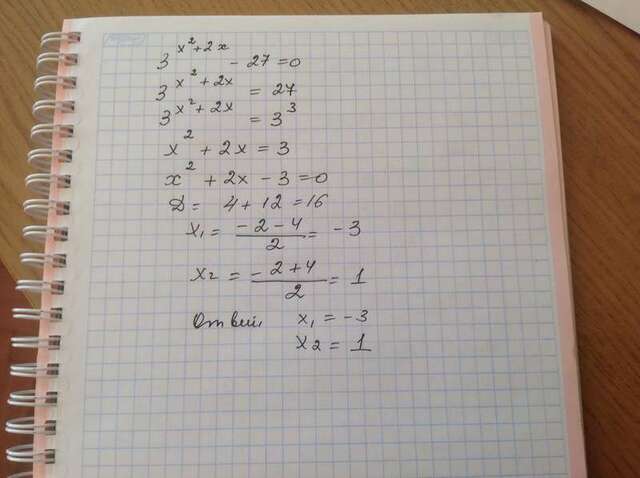 3^(x² + 2x) - 27 = 0
3^(x² + 2x) = 27
3^(x² + 2x) = 3³
x² + 2x = 3
x² + 2x - 3 = 0
D = 4 + 12 = 16
x₁ = (-2 - 4)/2 = -3
x₂ = (-2 + 4)/2 = 1
Ответ: x₁ = -3
x₂ = 1